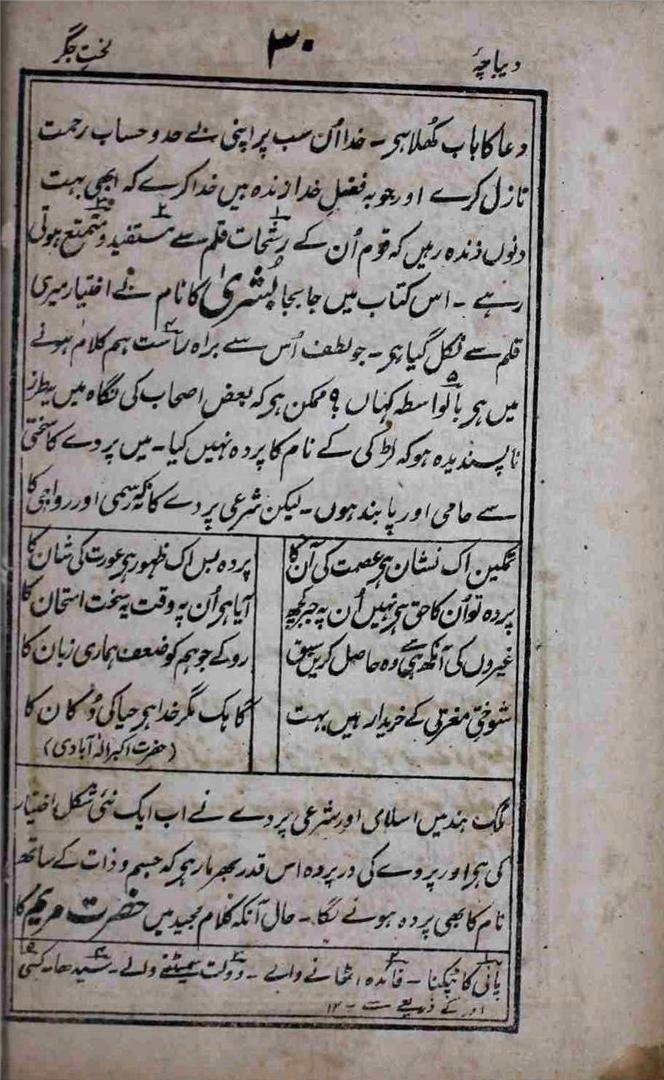 دیباچۂ ۳۰ لختِ جگر
دعا کا باب کُھلا ہی ۔ خدا اُن سب پر اپنی بے حد و حساب رحمت
نازل کرے اور جو بہ فضلِ خدا زندہ ہیں خدا کرے کہ ابھی بہت
دنوں زندہ رہیں کہ قوم اُن کے رشحات قلم سے مستفید و متمتع ہوتی
رہے ۔ اس کتاب میں جابجا بُشریٰ کا نام بے اختیار میری
قلم سے نکل گیا ہی ۔ جو لطف اُس سے براہ راست ہم کلام ہونے
میں ہی بالواسطہ کہاں ؟ ممکن ہی کہ بعض اصحاب کی نگاہ میں یہ طرز
ناپسندیدہ ہو کہ لڑکی کے نام کا پردہ نہیں کیا ۔ میں پردے کا سختی
سے حامی اور پابند ہوں ۔ لیکن شرعی پردے کا نہ کہ رسمی اور رواجی کا
تمکین اک نشان ہی عصمت کی آن کا پردہ بس اک ظہور ہی عورت کی شان کا
پردہ تو اُن کا حق ہی نہیں اُن پہ جبر کچھ آیا ہی اُن پہ وقت یہ سخت امتحان کا
غیروں کی آنکھ ہی سے وہ حاصل کریں سبق روکے جو ہم کو ضعف ہماری زبان کا
شوخیِ مغربی کے خریدار ہیں بہت گاہک مگر خدا ہی حیا کی دُکان کا
(حضرت اکبر الہ آبادی)
ملک ہند میں اسلامی اور شرعی پردے نے اب ایک نئی شکل اختیار
کی ہی اور پردے کی در پردہ اس قدر بھرمار ہی کہ جسم و ذات کے ساتھ
نام کا بھی پردہ ہونے لگا ۔ حال آنکہ کلام مجید میں حضرت مریم کا
۱ پانی کا ٹپکنا ۔ ۲ فائدہ اٹھانے والے ۔ ۳ دولت سمیٹنے والے ۔ ۴ سیدھا ۔ ۵ کسی
اور کے ذریعے سے ۔ ۱۲